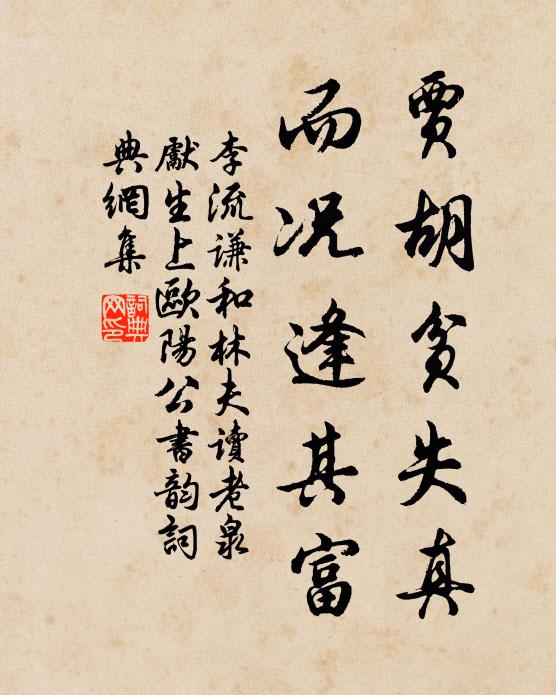 賈胡貧失真
而况逢其富
李流謙和林夫讀老泉
獻生上歐陽公書韵詞
典網集
詞典
网印